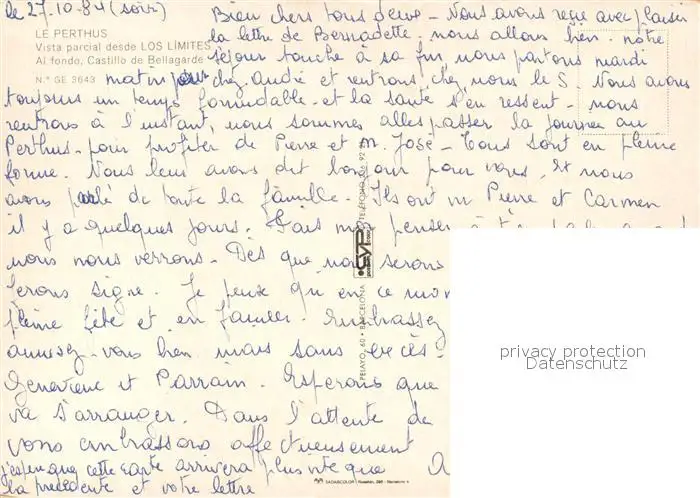 le 27.10.84 (soir)
LE PERTHUS
Vista parcial desde LOS LÍMITES
Al fondo, Castillo de Bellagarde
N.° GE 3643
Bien chers tous deux - Nous avons reçu avec plaisir
la lettre de Bernadette. nous allons bien - notre
séjour touche à sa fin, nous partons mardi
matin pour chez André et rentrons chez nous le 5. Nous avons
toujours un temps formidable - et la santé s'en ressent - nous
rentrons à l'instant, nous sommes allés passer la journée au
Perthus - pour profiter de Pierre et M. José - Tous sont en pleine
forme. Nous leur avons dit bonjour pour vous, et nous
avons parlé de toute la famille. Ils ont vu Pierre et Carmen
il y a quelques jours.
nous nous verrons - Dès que nous serons
ferons signe. Je pense qu'en ce mom
pleine fête et en famille. Embrassez
amusez-vous bien mais sans excès.
Geneviève et Parrain. Espérons que
va s'arranger. Dans l'attente de
vous embrassons affectueusement
j'espère que cette carte arrivera plus vite que
la précédente et votre lettre
PELAYO, 60 • BARCELONA
CYP
privacy protection
Datenschutz